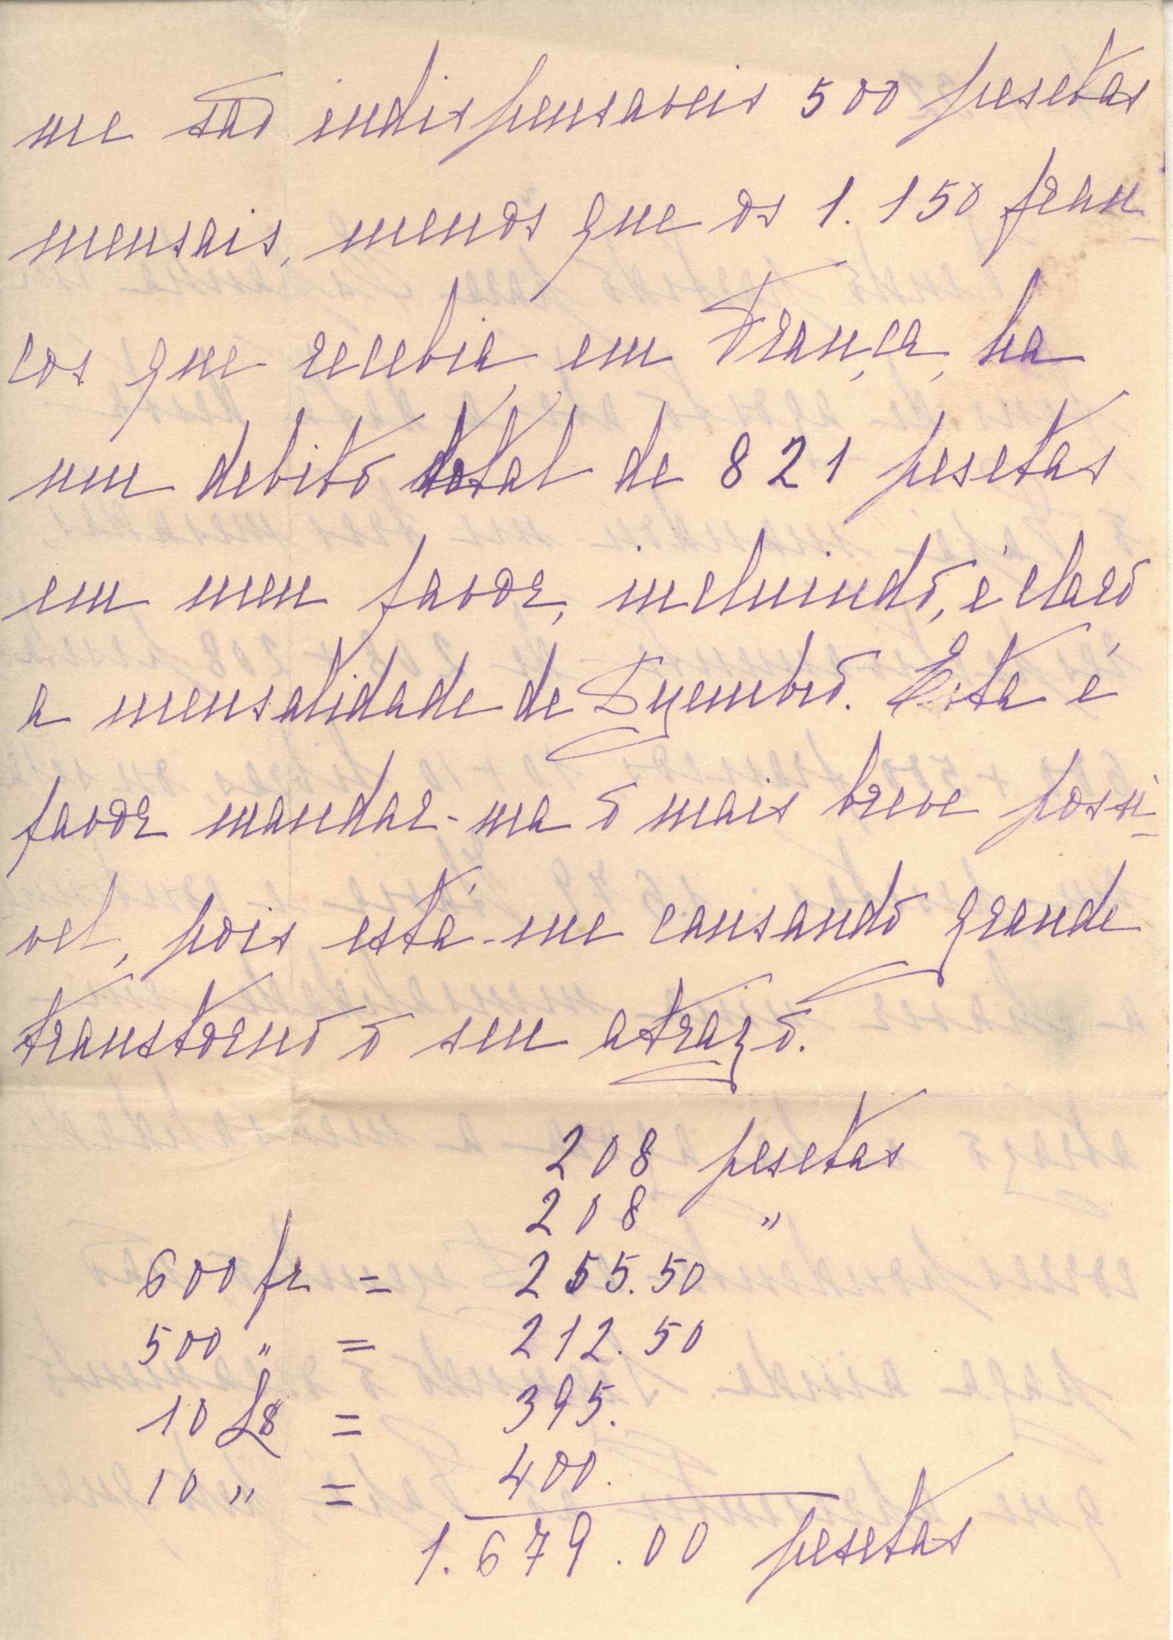 me são indispensaveis 500 pesetas
mensais, menos que os 1.150 fran-
cos que recebia em França, ha
um debito total de 821 pesetas
em meu favor, incluindo, é claro
a mensalidade de Dezembro. Esta é
favor mandar-ma o mais breve possi-
vel, pois está-me causando grande
transtorno o seu atrazo.
208 pesetas
208 "
600 fr = 255.50
500 " = 212.50
10 £s = 395.
10 " = 400.
1.679.00 pesetas